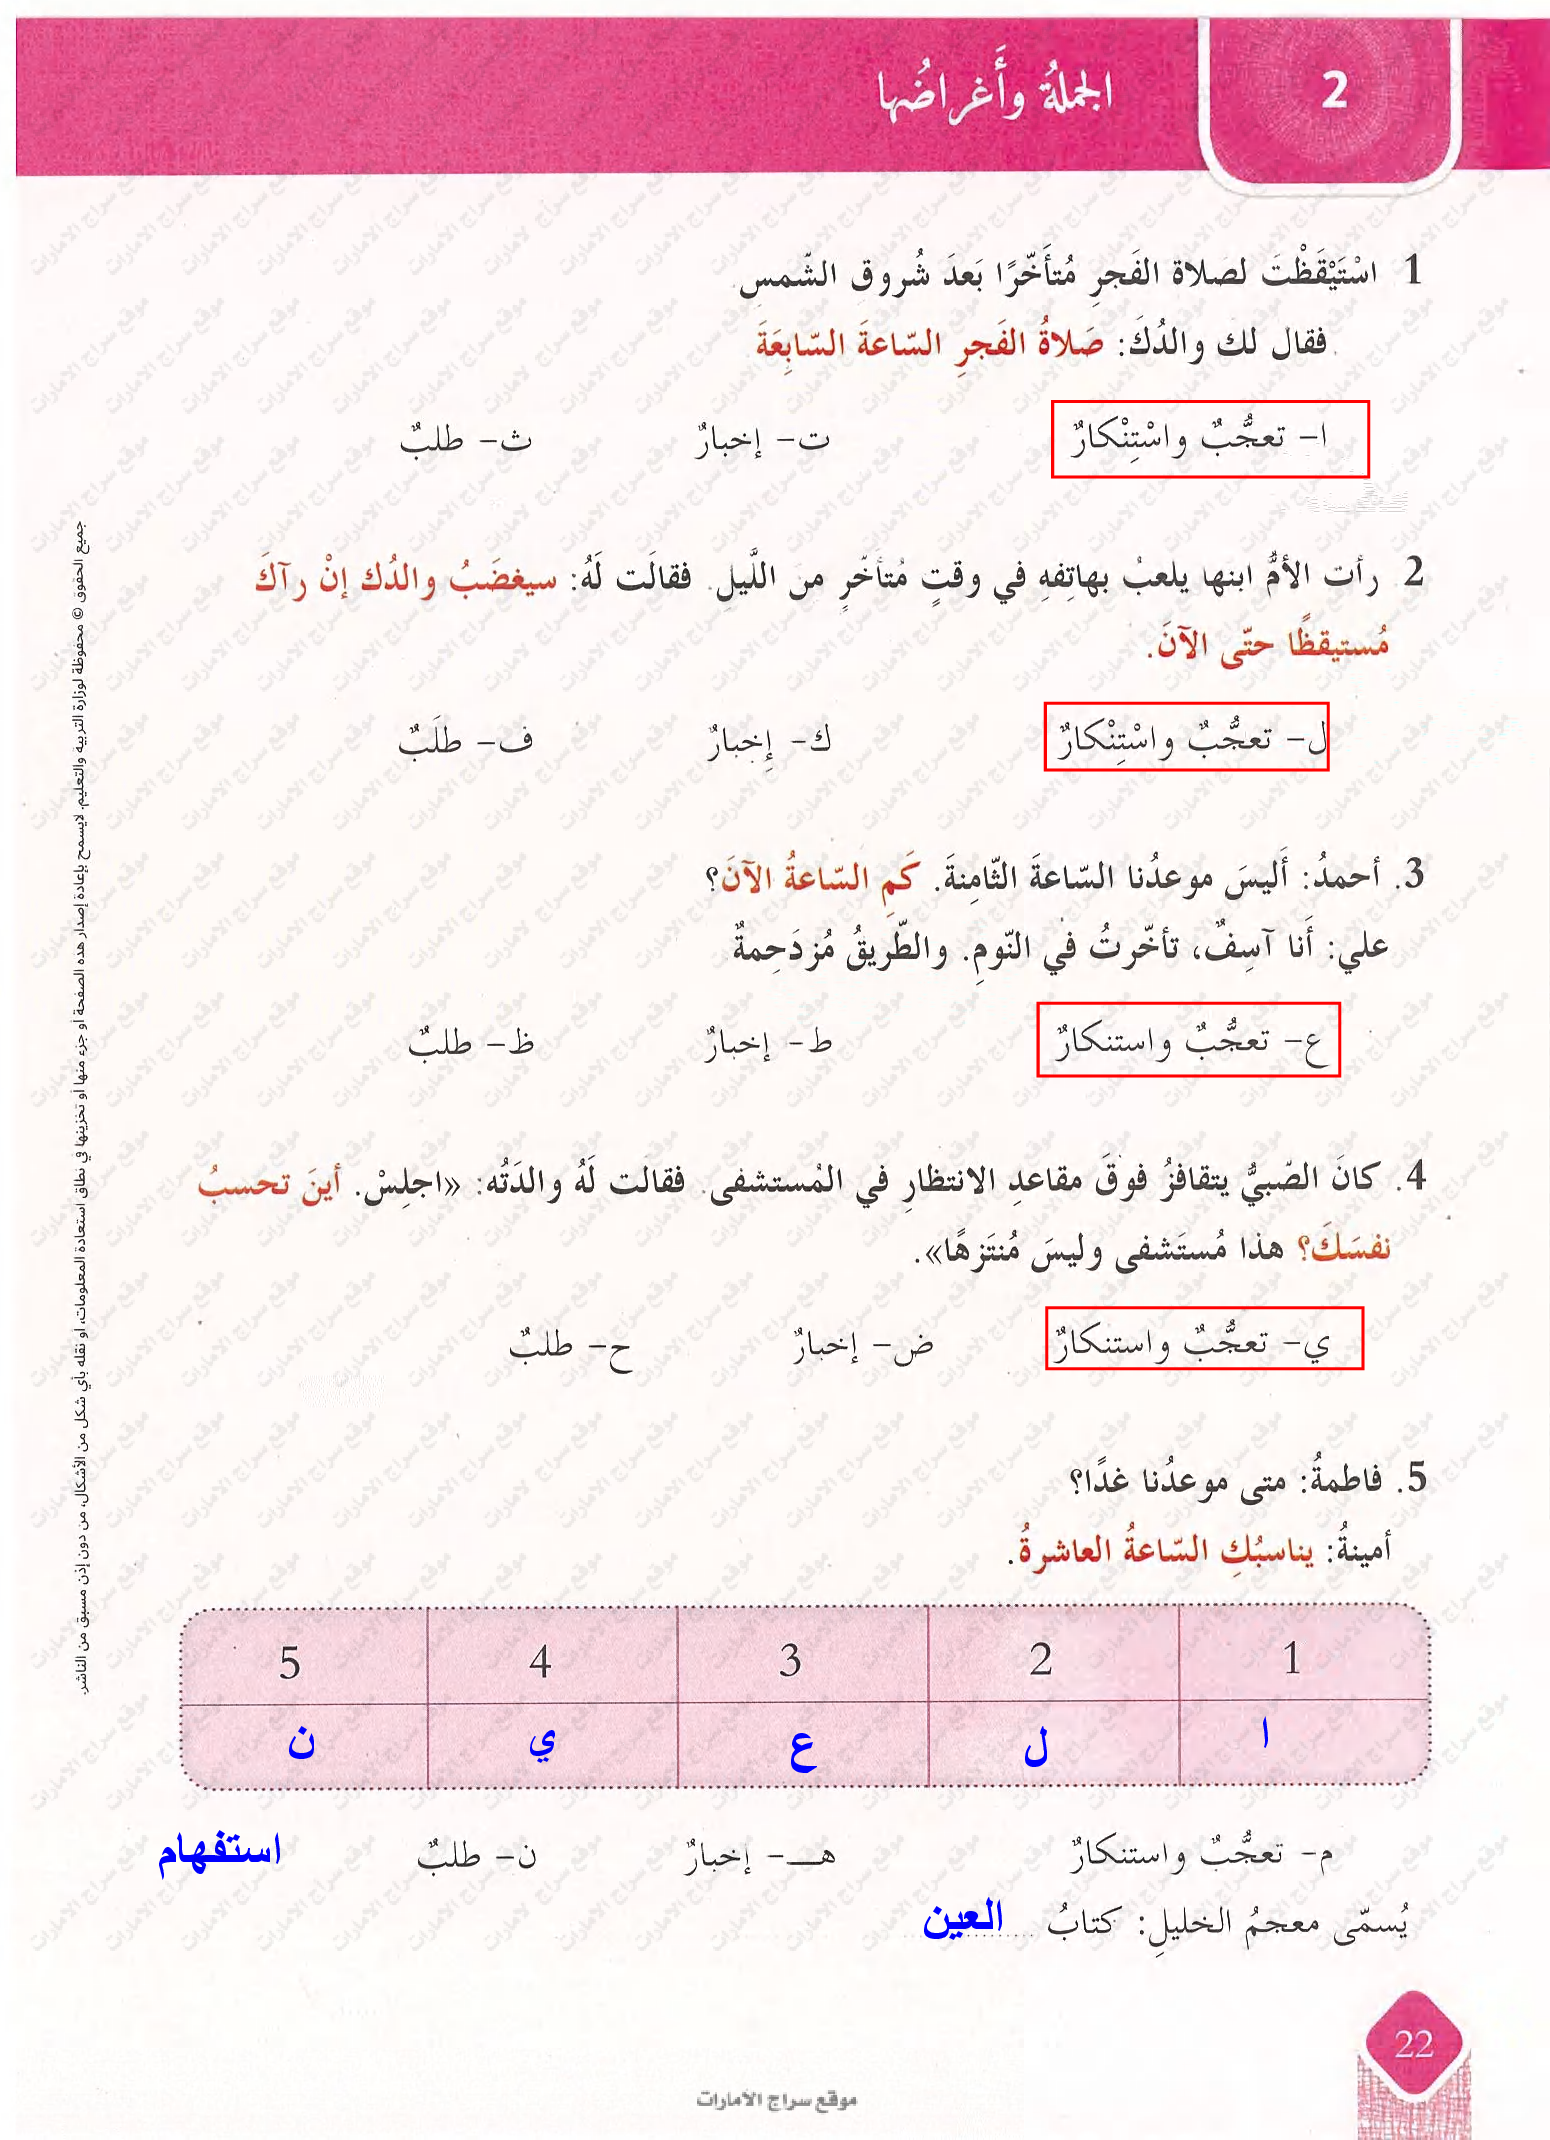 2
الجملةُ وأَغراضُها
1 اسْتَيْقَظْتَ لصلاة الفَجرِ مُتأَخّرًا بَعدَ شُروق الشّمس
فقال لك والدُكَ: صَلاةُ الفَجرِ السّاعةَ السّابِعَةَ
ا- تعجُّبٌ واسْتِنْكارٌ ت- إخبارٌ ث- طلبٌ
2 رأت الأمُّ ابنها يلعبُ بهاتِفهِ في وقتٍ مُتأخّرٍ من اللَّيل. فقالَت لَهُ: سيغضَبُ والدُك إنْ رآكَ
مُستيقظًا حتّى الآنَ.
ل- تعجُّبٌ واسْتِنْكارٌ ك- إِخبارٌ ف- طلَبٌ
3. أحمدُ: أَليسَ موعدُنا السّاعةَ الثّامِنةَ. كَمِ السّاعةُ الآنَ؟
علي: أَنا آسِفٌ، تأخّرتُ في النّومِ. والطّريقُ مُزدَحِمةٌ
ع- تعجُّبٌ واستنكارٌ ط- إخبارٌ ظ- طلبٌ
4. كانَ الصّبيُّ يتقافزُ فوقَ مقاعدِ الانتظارِ في المُستشفى. فقالت لَهُ والدَتُه: «اجلِسْ. أينَ تحسبُ
نفسَكَ؟ هذا مُستَشفى وليسَ مُنتَزهًا».
ي- تعجُّبٌ واستنكارٌ ض- إخبارٌ ح- طلبٌ
5. فاطمةُ: متى موعدُنا غدًا؟
أمينةُ: يناسبُكِ السّاعةُ العاشرةُ.
1 2 3 4 5
ا ل ع ي ن
م- تعجُّبٌ واستنكارٌ هـ- إخبارٌ ن- طلبٌ استفهام
يُسمّى معجمُ الخليلِ: كتابُ العين
جميع الحقوق © محفوظة لوزارة التربية والتعليم. لايسمح بإعادة إصدار هذه الصفحة أو جزء منها أو تخزينها في نطاق استعادة المعلومات، أو نقله بأي شكل من الأشكال، من دون إذن مسبق من الناشر.
22
موقع سراج الامارات